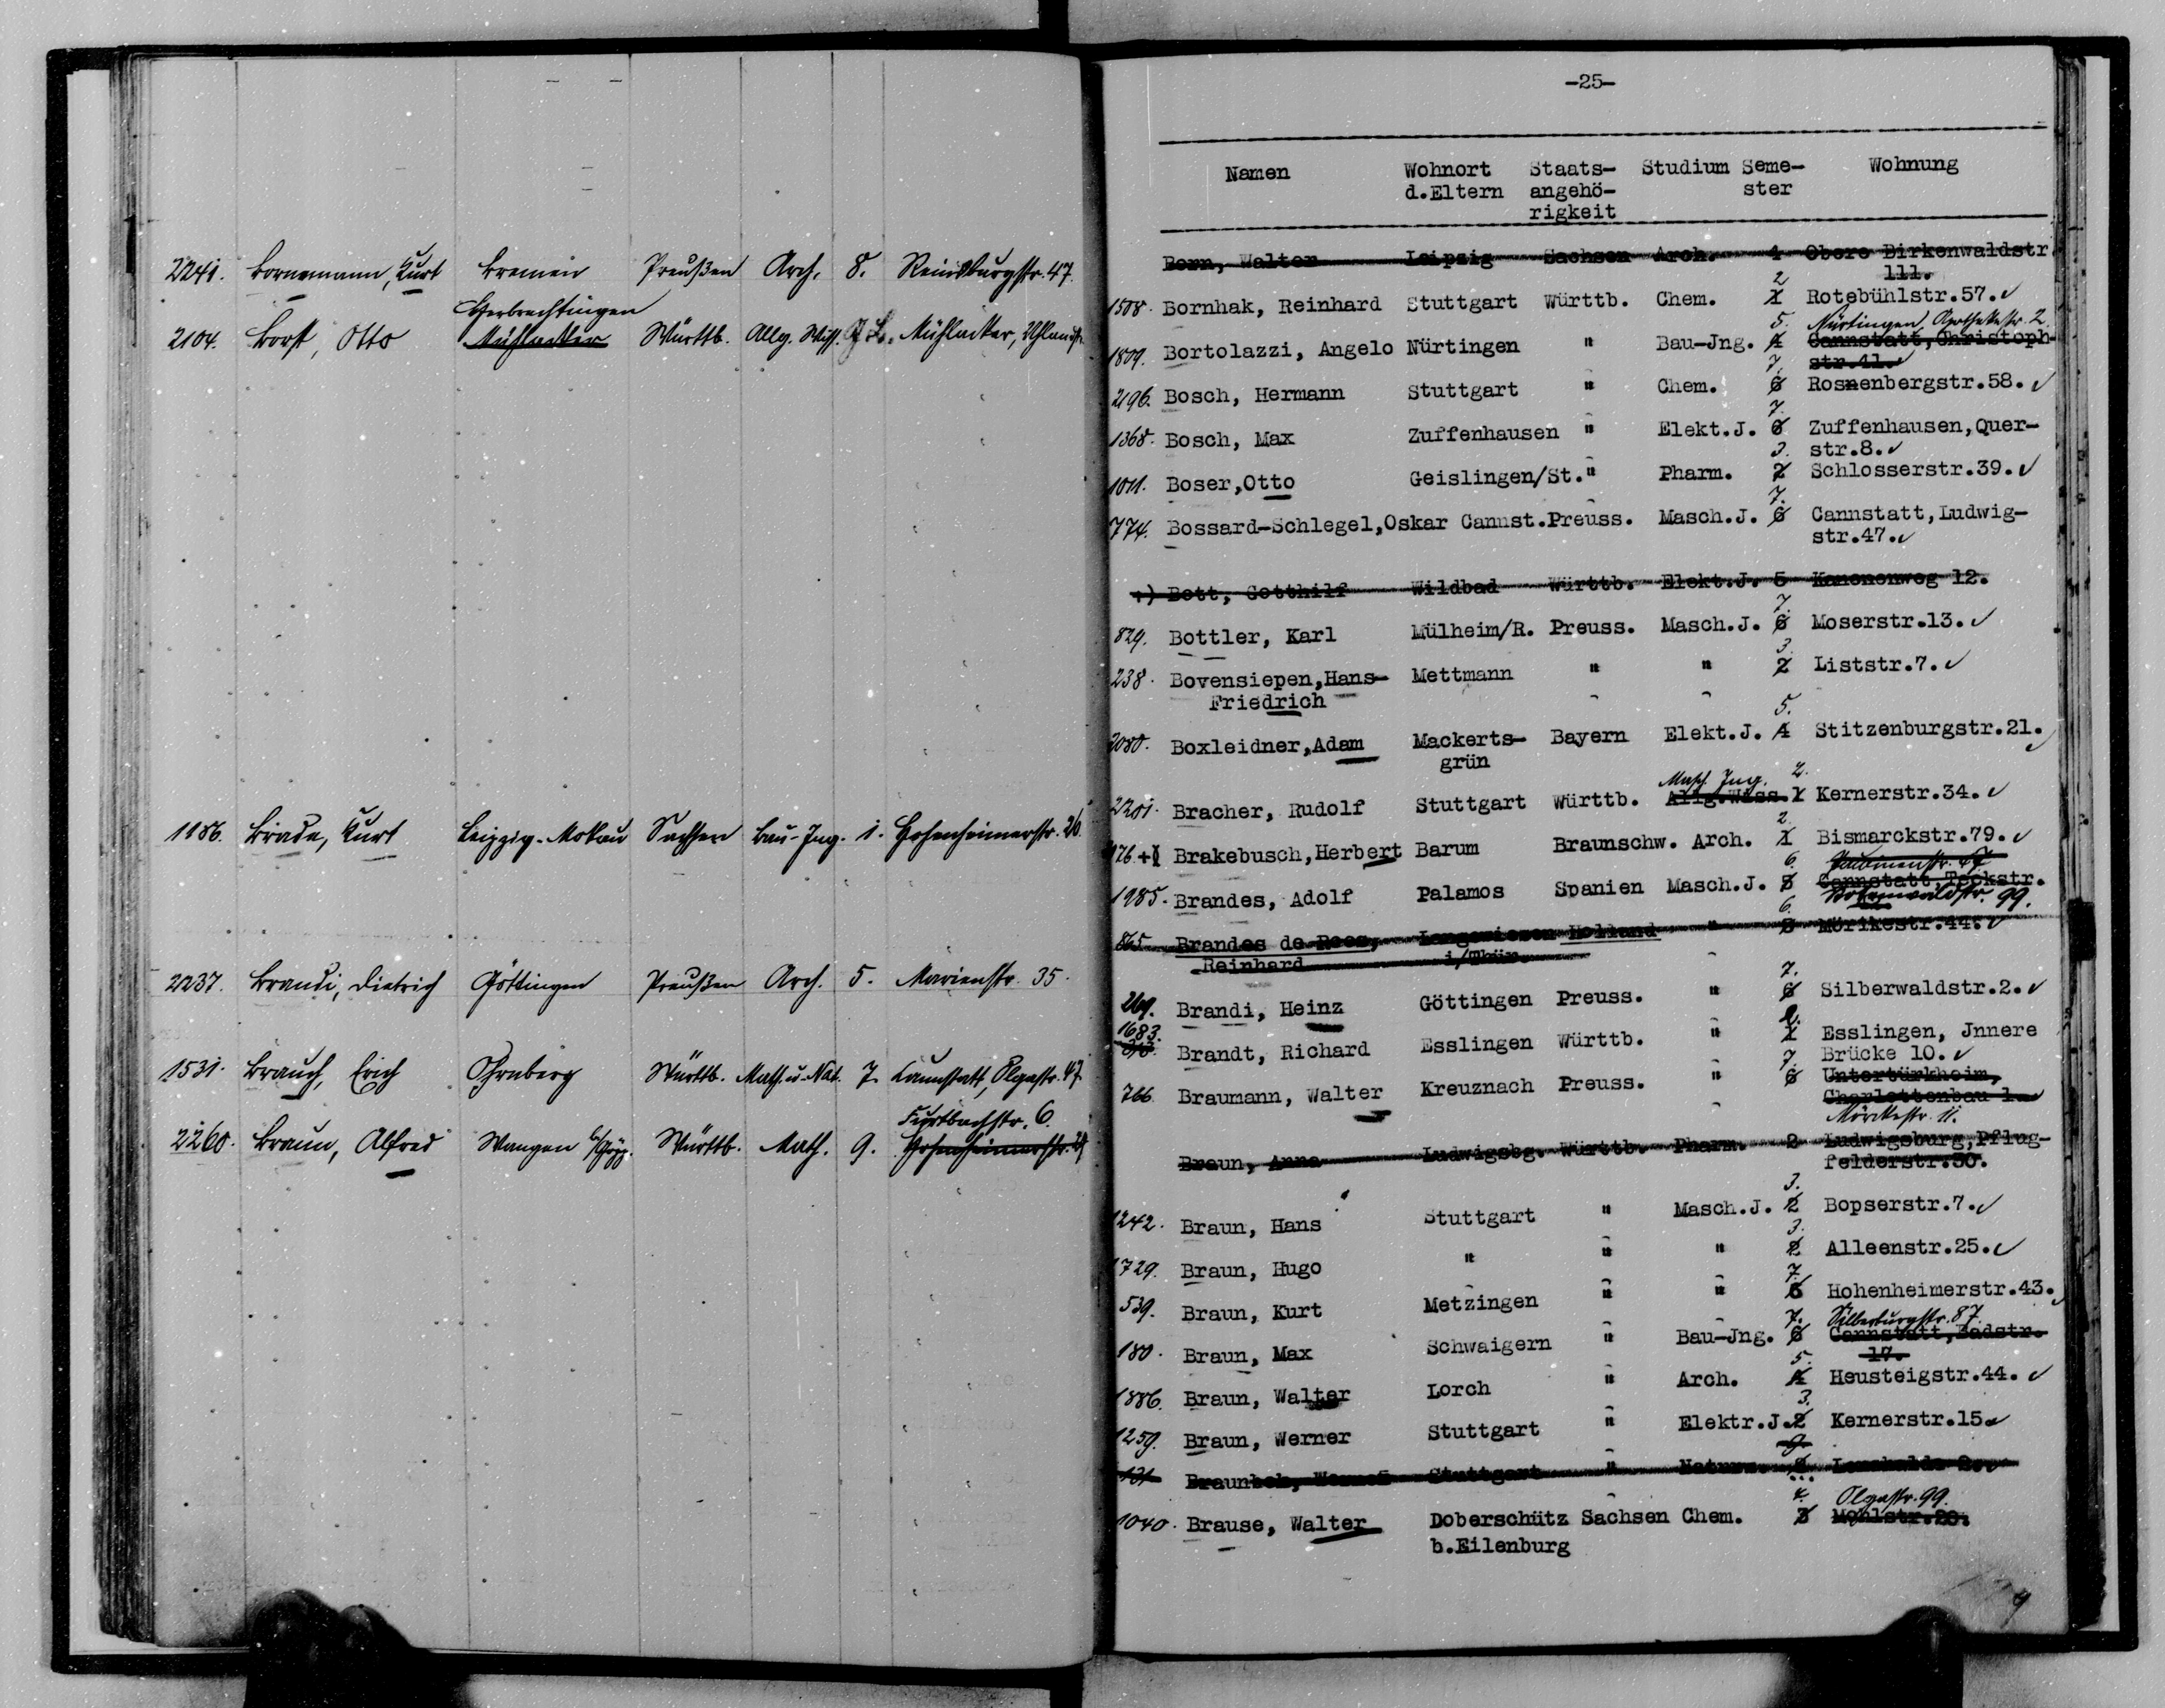 2241. Bornemann, Kurt Bremen Preußen Arch. 8. Reinsburgstr. 47.
Herbrechtingen
2104. Borst, Otto Mühlacker Württb. Allg. Wiss. Mühlacker, Uhlandstr.
1186. Brade, Kurt Leipzig-Mokau Sachsen Bau-Ing. 1. Hohenheimerstr. 26.
2237. Brandi, Dietrich Göttingen Preußen Arch. 5. Marienstr. 35.
1531. Brauch, Erich Ohrnberg Württb. Math. u. Nat. 7. Cannstatt, Olgastr. 47
Furtbachstr. 6.
2260. Braun, Alfred Wangen b/Göpp. Württb. Math. 9. Hohenheimerstr.
-25-
Namen Wohnort Staats- Studium Seme- Wohnung
d.Eltern angehö- ster
rigkeit
Born, Walter Leipzig Sachsen Arch. 4 Obere Birkenwaldstr
111.
2
1508. Bornhak, Reinhard Stuttgart Württb. Chem. 1 Rotebühlstr.57.
5. Nürtingen, Apothekestr. 2.
1809. Bortolazzi, Angelo Nürtingen " Bau-Jng. 4 Cannstatt,Christoph-
7. str.41.
2196. Bosch, Hermann Stuttgart " Chem. 6 Rosnenbergstr.58.
7.
1368. Bosch, Max Zuffenhausen " Elekt.J. 6 Zuffenhausen,Quer-
3. str.8.
1011. Boser,Otto Geislingen/St." Pharm. 2 Schlosserstr.39.
7.
774. Bossard-Schlegel,Oskar Cannst.Preuss. Masch.J. 6 Cannstatt,Ludwig-
str.47.
Bott, Gotthilf Wildbad Württb. Elekt.J. 5 Kanonenweg 12.
7.
829. Bottler, Karl Mülheim/R. Preuss. Masch.J. 6 Moserstr.13.
3.
238. Bovensiepen,Hans- Mettmann " " 2 Liststr.7.
Friedrich
5.
2080. Boxleidner,Adam Mackerts- Bayern Elekt.J. 4 Stitzenburgstr.21.
grün
Masch. Ing. 2.
2201. Bracher, Rudolf Stuttgart Württb. Allg.Wiss. 1 Kernerstr.34.
2.
976.+ Brakebusch,Herbert Barum Braunschw. Arch. 1 Bismarckstr.79.
6.
1985. Brandes, Adolf Palamos Spanien Masch.J. 5 Cannstatt,Teckstr.
6. 99.
865. Brandes de Roos, Langewiesen Holland " 5 Mörikestr.44.
Reinhard i/Thür.
7.
269. Brandi, Heinz Göttingen Preuss. " 6 Silberwaldstr.2.
1683. 2.
Brandt, Richard Esslingen Württb. " 1 Esslingen, Jnnere
7. Brücke 10.
766 Braumann, Walter Kreuznach Preuss. " 6 Untertürkheim,
Charlottenbau 1.
Mörikestr. 11.
Braun, Anna Ludwigsbg. Württb. Pharm. 2 Ludwigsburg,Pflug-
felderstr.30.
3.
1242. Braun, Hans Stuttgart " Masch.J. 2 Bopserstr.7.
3.
1729. Braun, Hugo " " " 2 Alleenstr.25.
7.
539. Braun, Kurt Metzingen " " 6 Hohenheimerstr.43.
7. Silberburgstr. 87.
180. Braun, Max Schwaigern " Bau-Jng. 6 Cannstatt,Badstr.
17.
5.
1886. Braun, Walter Lorch " Arch. 4 Heusteigstr.44.
3.
1259. Braun, Werner Stuttgart " Elektr.J.2 Kernerstr.15.
131 Braunbek, Werner Stuttgart "
4. Olgastr. 99.
1040. Brause, Walter Doberschütz Sachsen Chem. 3 Mohlstr.20.
b.Eilenburg